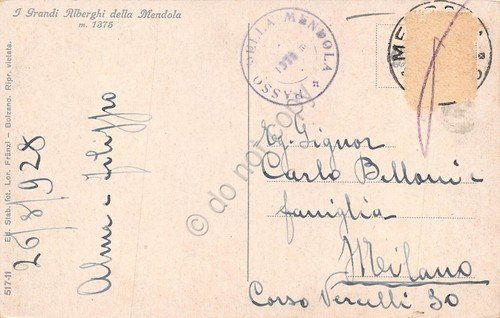 I Grandi Alberghi della Mendola
m. 1375
PASSO DELLA MENDOLA
1375
MENDOLA
Eg. Signor
Carlo Belloni e
famiglia
Milano
Corso Vercelli 30
Alma e Filippo
26/8/928
517-11 Ed. Stab. fot. Lor. Fränzl - Bolzano. Ripr. vietata.
do not copy